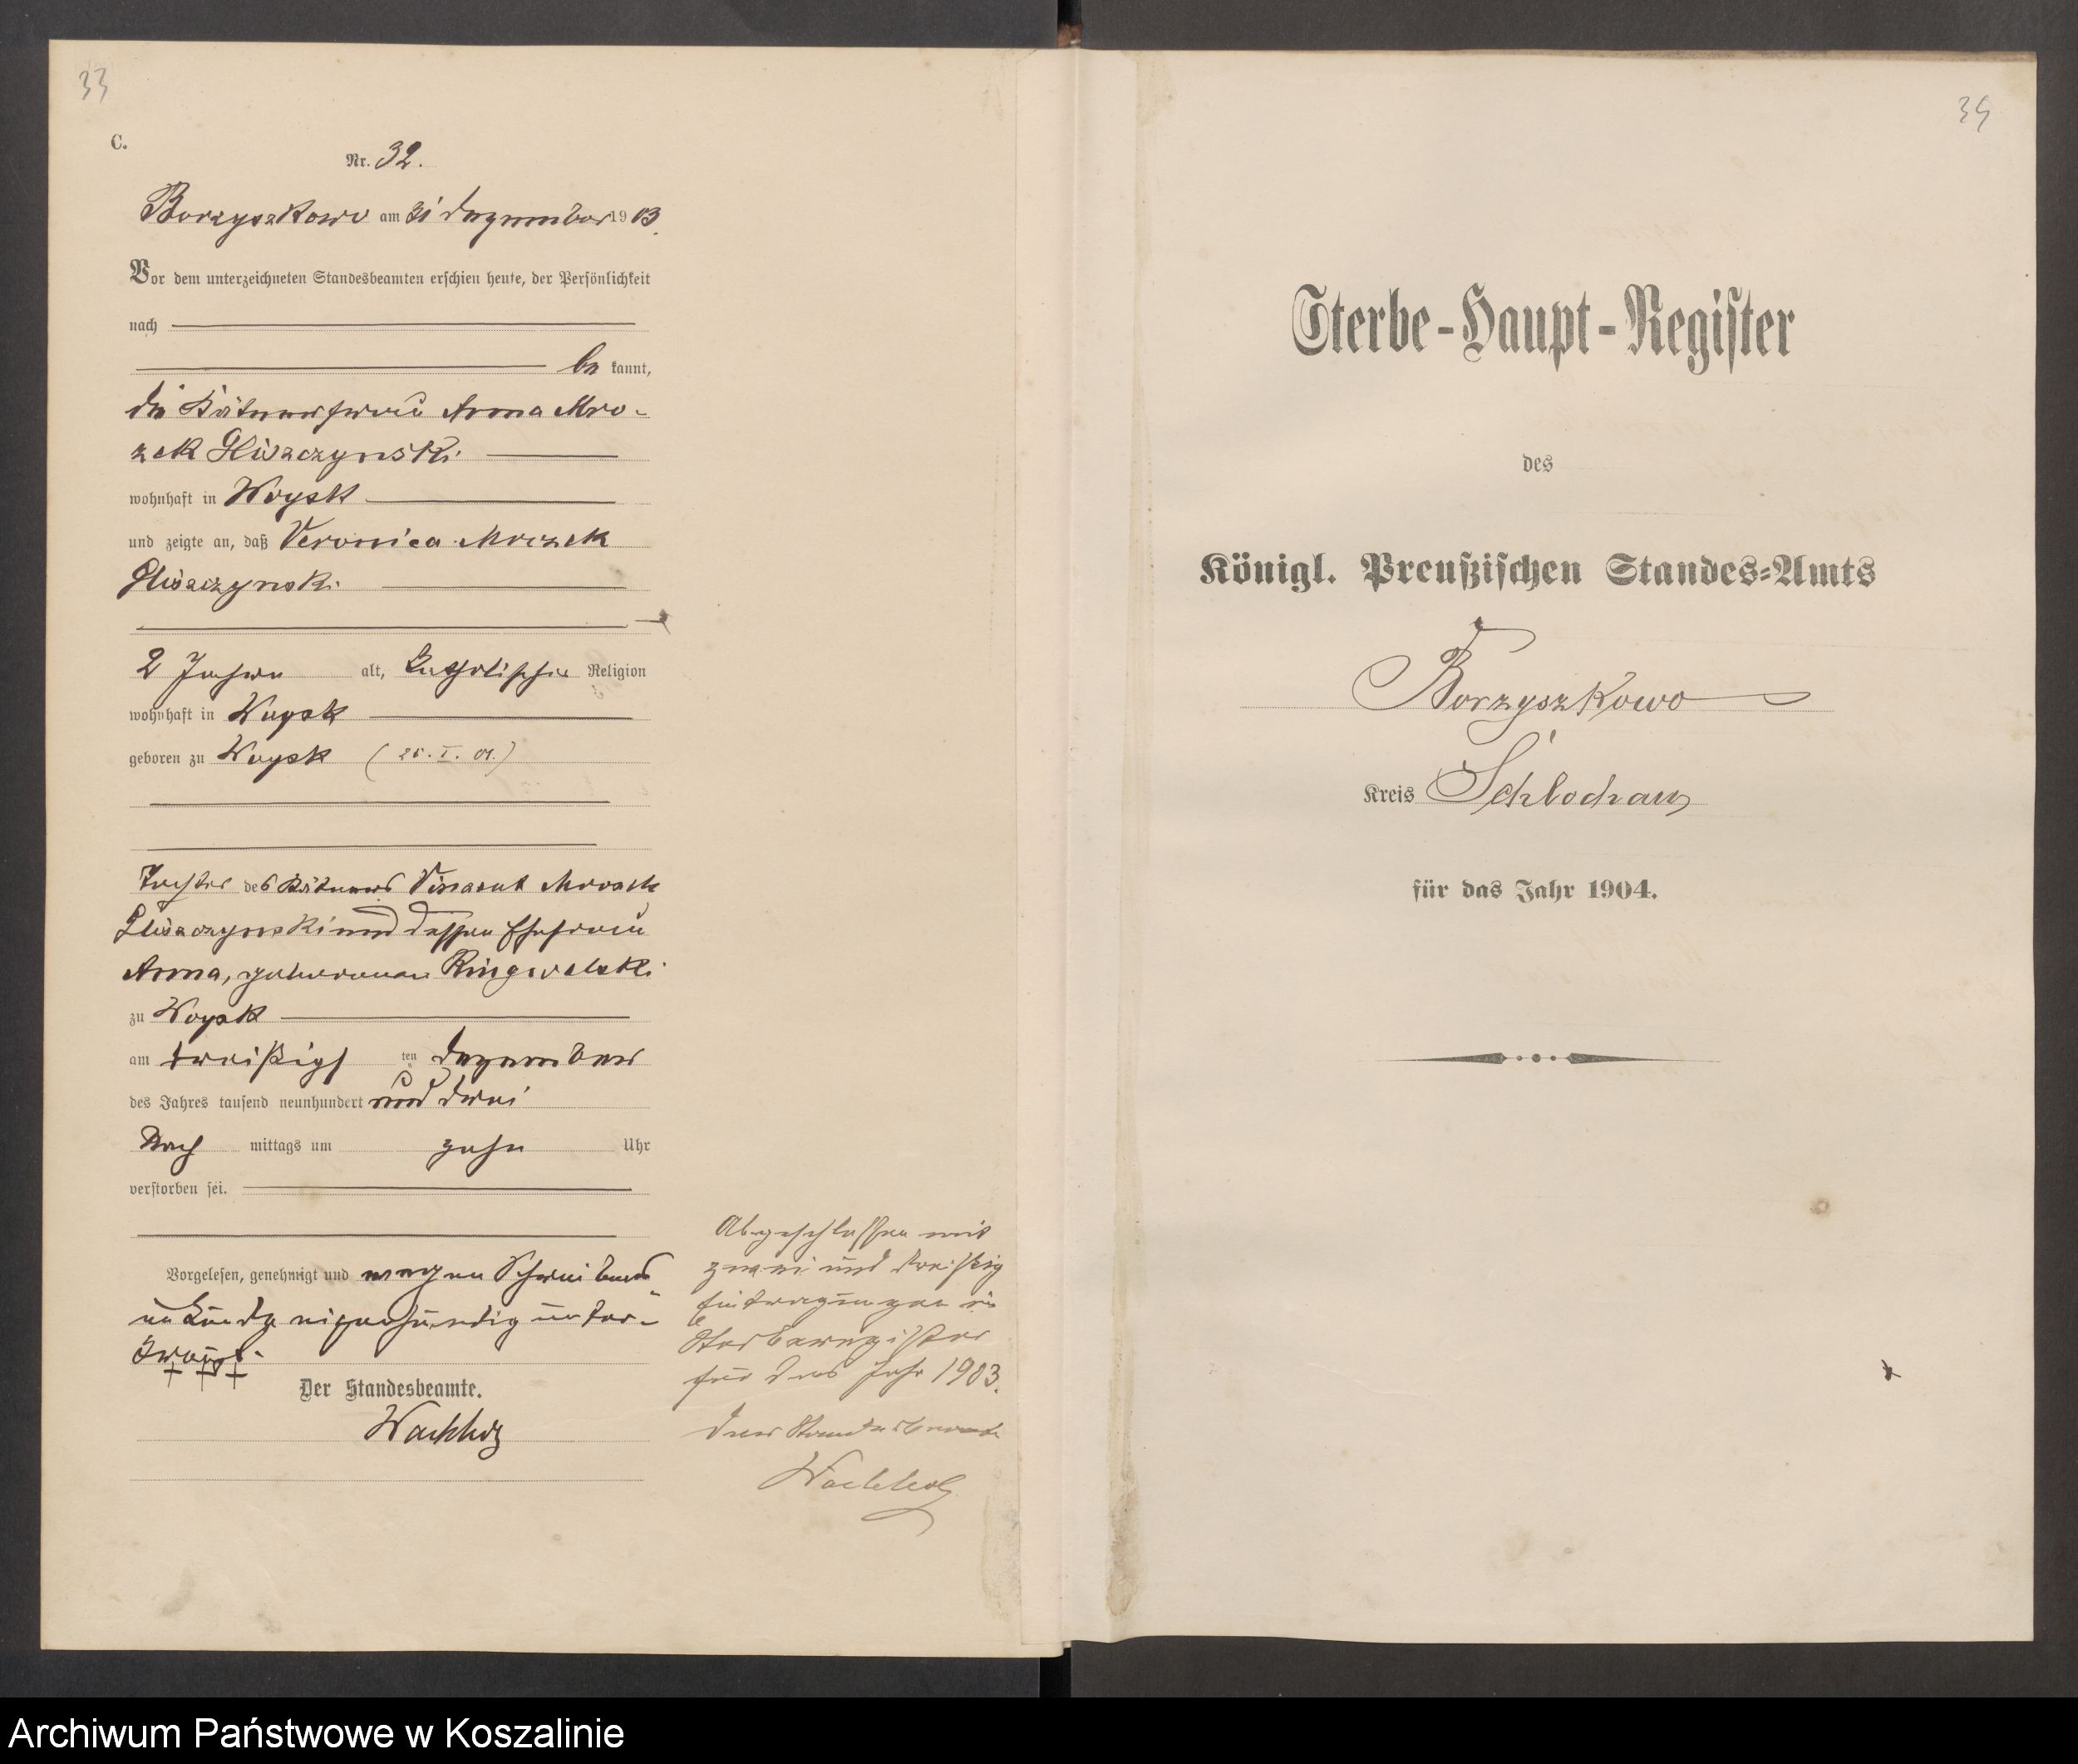 33
C.
Nr. 32.
Borzyszkowo am 31 Dezember 1903.
Vor dem unterzeichneten Standesbeamten erschien heute, der Persönlichkeit
nach
be kannt,
die Kätnerfrau Anna Mro-
zek Gliszczynski
wohnhaft in Woysk
und zeigte an, daß Veronica Mrozek
Gliszczynski
2 Jahre alt, katholischer Religion
wohnhaft in Woysk
geboren zu Woysk (25. I. 01.)
Tochter des Kätners Vincent Mrozek
Gliszczynski und dessen Ehefrau
Anna, geborenen Ringwelski
zu Woysk
am dreißigs ten Dezember
des Jahres tausend neunhundert und drei
Nach mittags um zehn Uhr
verstorben sei.
Vorgelesen, genehmigt und wegen Schreibens
unkunde eigenhändig unter-
kreuzt.
+++
Der Standesbeamte.
Wachholz
Abgeschlossen mit
zwei und dreißig
Eintragungen im
Sterberegister
für das Jahr 1903.
Der Standesbeamte
Wachholz
34
Sterbe-Haupt-Register
des
Königl. Preußischen Standes-Amts
Borzyszkowo
Kreis Schlochau
für das Jahr 1904.
Archiwum Państwowe w Koszalinie